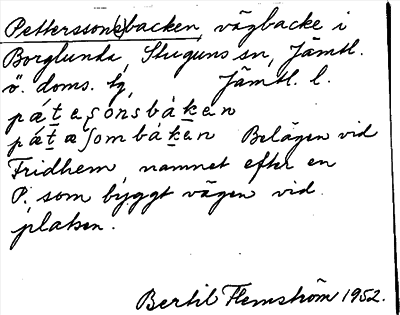 Pettersons(backen, vägbacke i
Borglunda, Stuguns sn, Jämtl.
ö. doms. tg, Jämtl. l.
pát̠esónsbàk̠en
pát̠aʃombàk̠en Belägen vid
Fridhem, namnet efter en
P. som byggt vägen vid
platsen.
Bertil Flemström 1952.